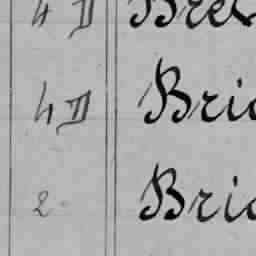 4 II Brex
4 II Bric
2. Bric